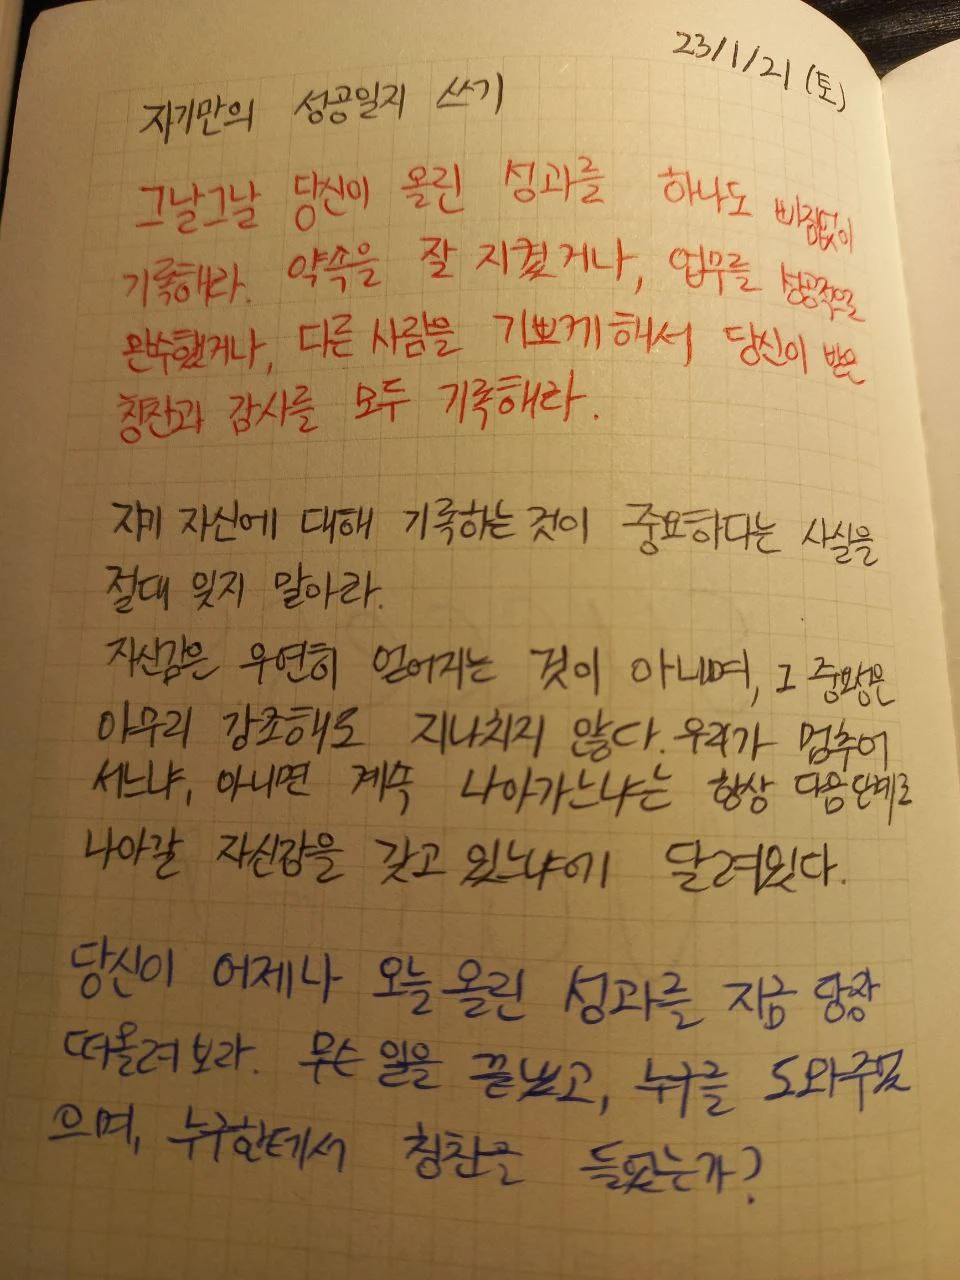 23/1/21 (토)
자기만의 성공일지 쓰기
그날그날 당신이 올린 성과를 하나도 빠짐없이
기록해라. 약속을 잘 지켰거나, 업무를 성공적으로
완수했거나, 다른 사람을 기쁘게 해서 당신이 받은
칭찬과 감사를 모두 기록해라.
자기 자신에 대해 기록하는 것이 중요하다는 사실을
절대 잊지 말아라.
자신감은 우연히 얻어지는 것이 아니며, 그 중요성은
아무리 강조해도 지나치지 않다. 우리가 멈추어
서느냐, 아니면 계속 나아가느냐는 항상 다음 단계로
나아갈 자신감을 갖고 있느냐에 달려있다.
당신이 어제나 오늘 올린 성과를 지금 당장
떠올려 보라. 무슨 일을 끝냈고, 누구를 도와주었
으며, 누구한테서 칭찬을 들었는가?